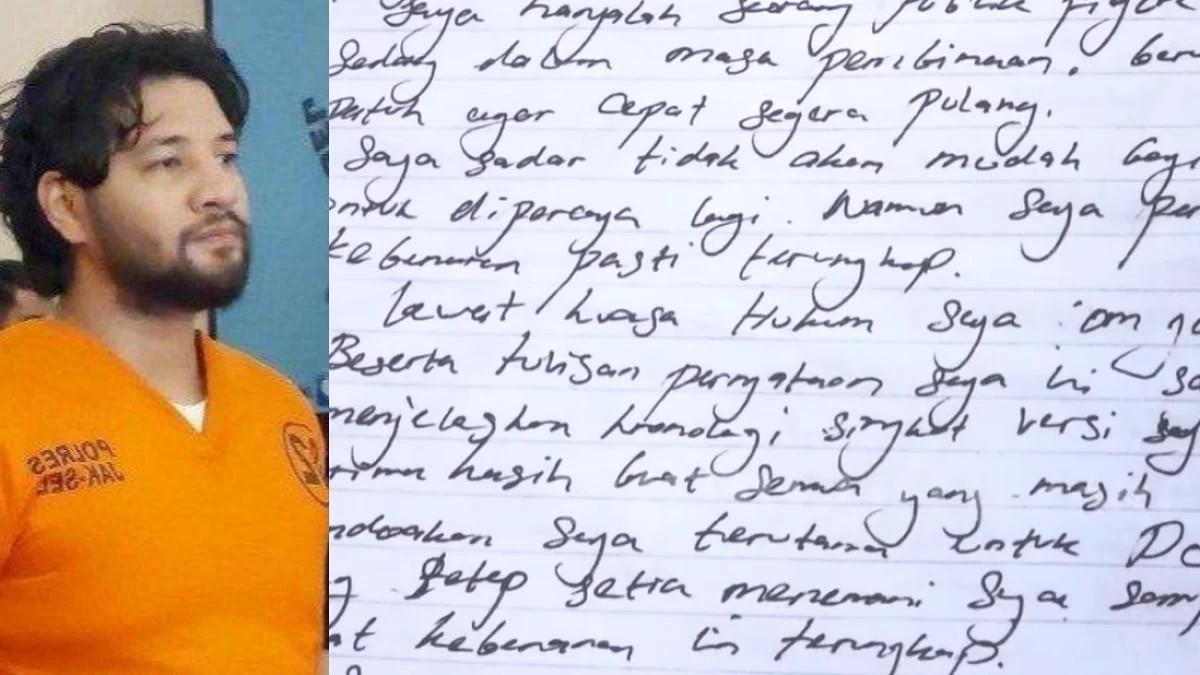 POLRES
JAK-SEL
saya hanyalah seorang publik figur
sedang dalam masa pembinaan. ber
patuh agar cepat segera pulang.
Saya sadar tidak akan mudah bagi
untuk dipercaya lagi. Namun saya per
kebenaran pasti terungkap.
lewat kuasa Hukum saya om
Beserta tulisan pernyataan saya ini sa
menjelaskan kronologi singkat versi say
rima kasih buat semua yang masih
ndoakan saya terutama untuk
g tetep setia menemani saya samp
at kebenaran ini terungkap.